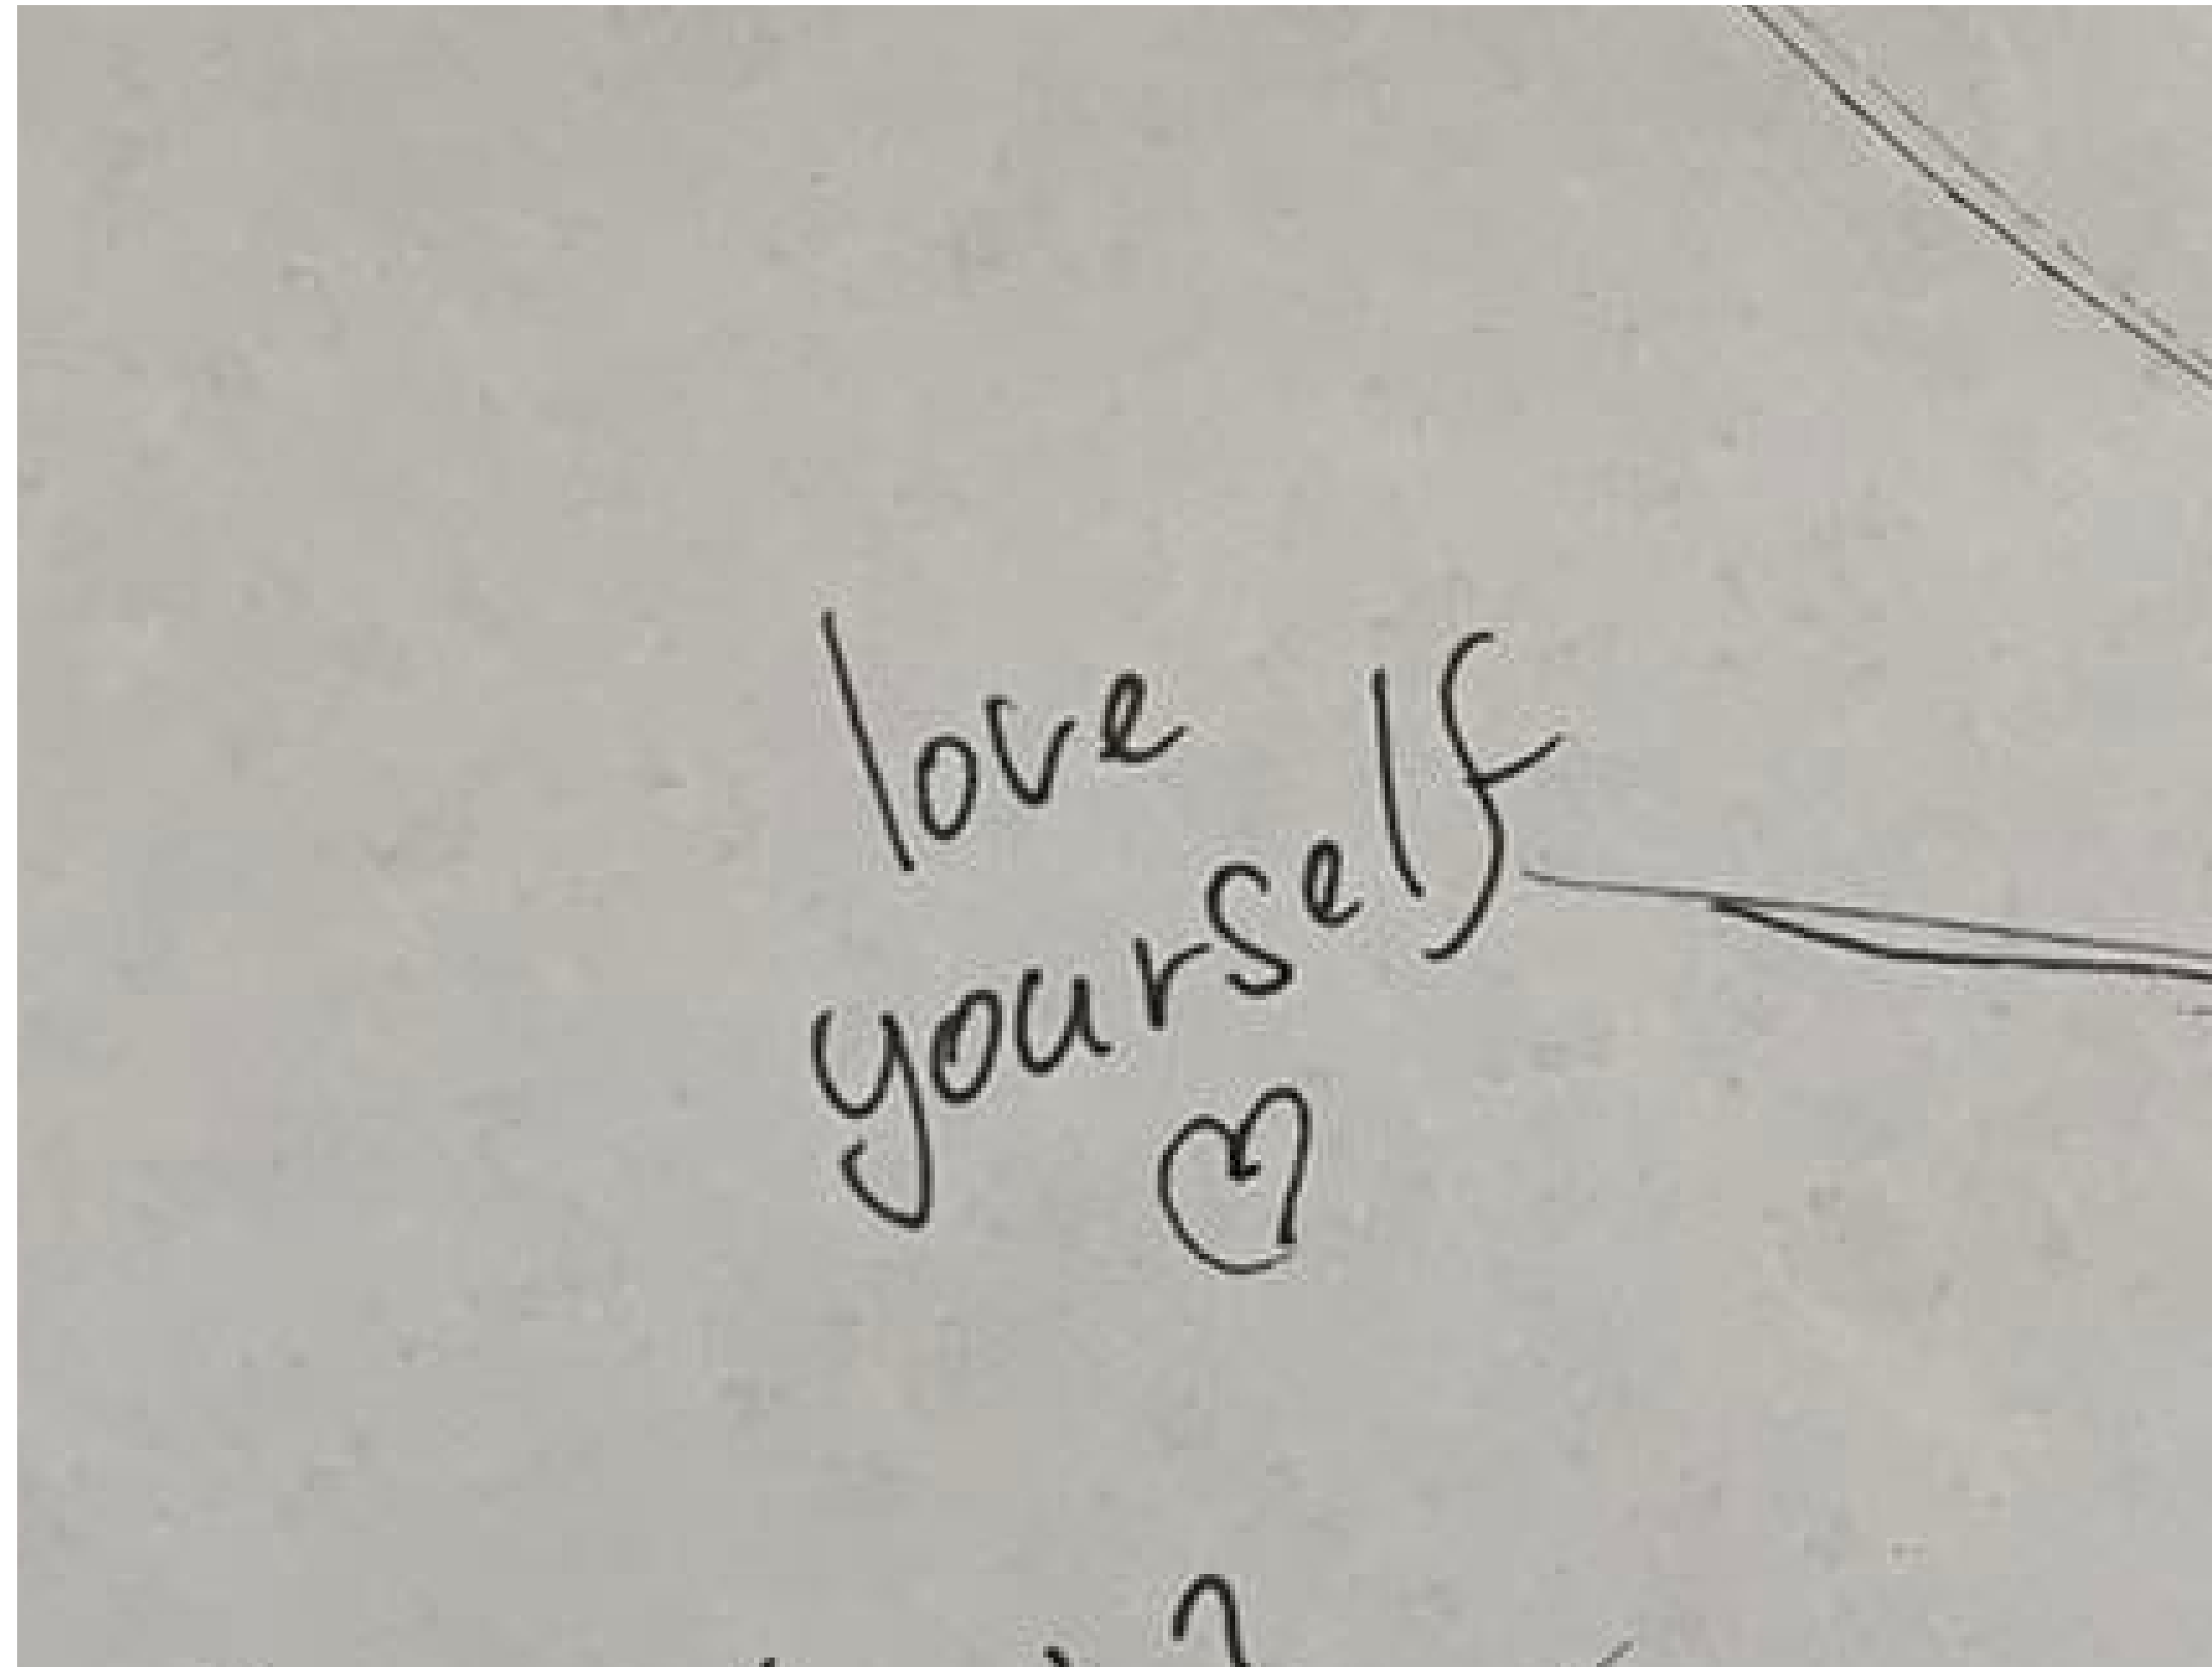 love
yourself
♡